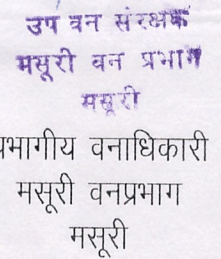 उप वन संरक्षक
मसूरी वन प्रभाग
मसूरी
प्रभागीय वनाधिकारी
मसूरी वनप्रभाग
मसूरी